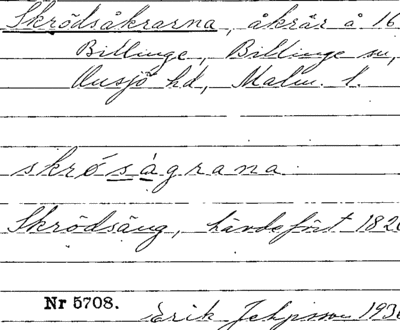 Skrödsåkrarna, åkrar å 16
Billinge, Billinge sn,
Onsjö hd, Malm. l.
skrósågrana
Skrödsäng, hävdefört 182
Nr 5708.
Erik Jeppsson 193